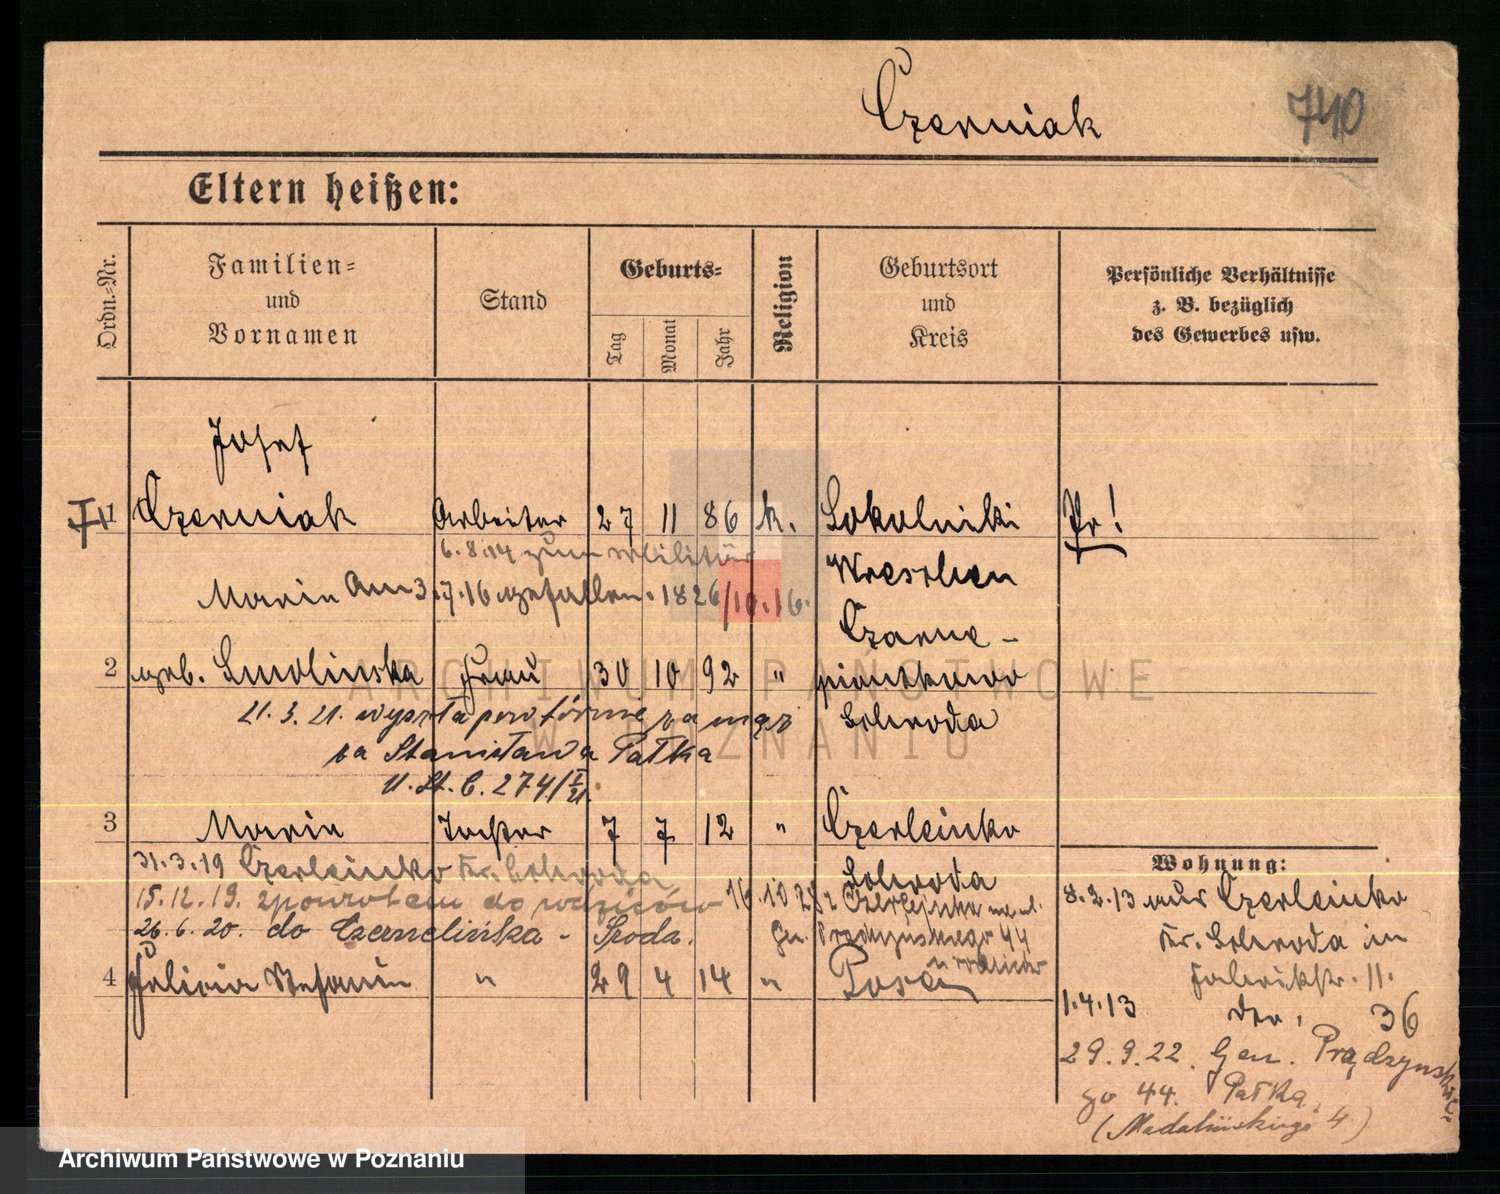 Czerniak
740
Eltern heißen:
Ordn.-Nr.
Familien-
und
Vornamen
Stand
Geburts-
Tag
Monat
Jahr
Religion
Geburtsort
und
Kreis
Persönliche Verhältnisse
z. B. bezüglich
des Gewerbes usw.
Josef
1 Czerniak Arbeiter 27 11 86 k. Sokolniki
Pr!
6.8.14 zum Militär
Wreschen
Maria Am 3.7.16 gefallen. 1826/10.16.
Czarne-
2 geb. Smolinska Frau 30 10 92 " piontkowo
21.3.21. wyszła powtórnie za mąż
Schroda
za Stanisława Pałka
U. St. C. 274/I 21.
3 Maria Tochter 7 7 12 " Czerleinko
Schroda
31.3.19 Czerleinko Kr. Schroda
15.12.19. zpowrotem do
16.10 28 z
26.6.20. do - Środa.
Gen. Prądzynskiego 44
4 Felicia Stefania " 29 4 14 " Posen
Wohnung:
8.2.13 aus Czerleinko
Kr. Schroda in
Fabrikstr. 11.
1.4.13 36
29.9.22. Gen. Prądzynskie
go 44. Pałka.
(Madalińskiego 4)
ARCHIWUM PAŃSTWOWE
W POZNANIU
Archiwum Państwowe w Poznaniu